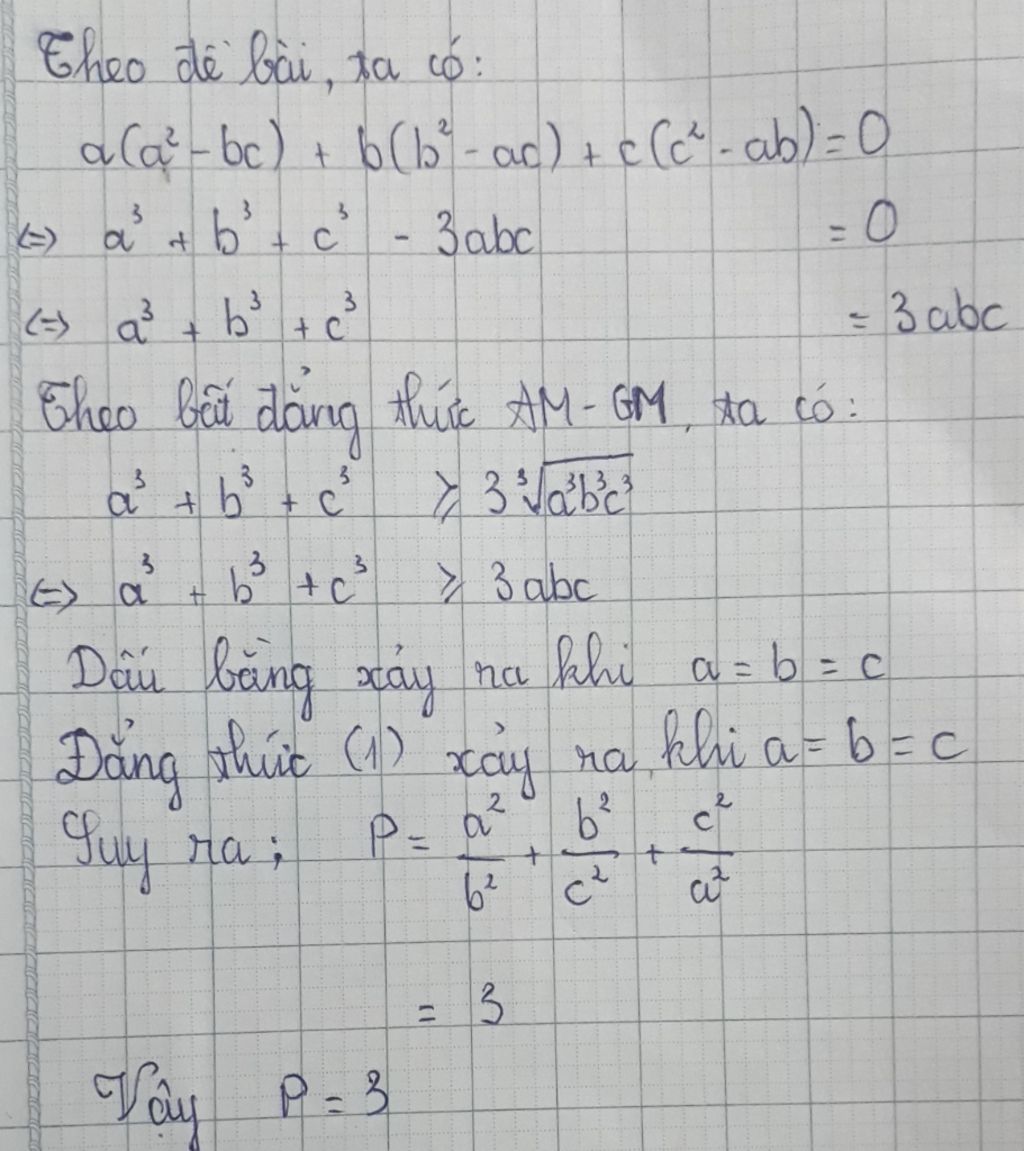 Theo đề bài, ta có:
a(a² - bc) + b(b² - ac) + c(c² - ab) = 0
<=> a³ + b³ + c³ - 3abc = 0
<=> a³ + b³ + c³ = 3abc
Theo bất đẳng thức AM-GM, ta có:
a³ + b³ + c³ ≥ 3∛(a³b³c³)
<=> a³ + b³ + c³ ≥ 3abc
Dấu bằng xảy ra khi a = b = c
Đẳng thức (1) xảy ra khi a = b = c
Suy ra; P = a²/b² + b²/c² + c²/a²
= 3
Vậy P = 3